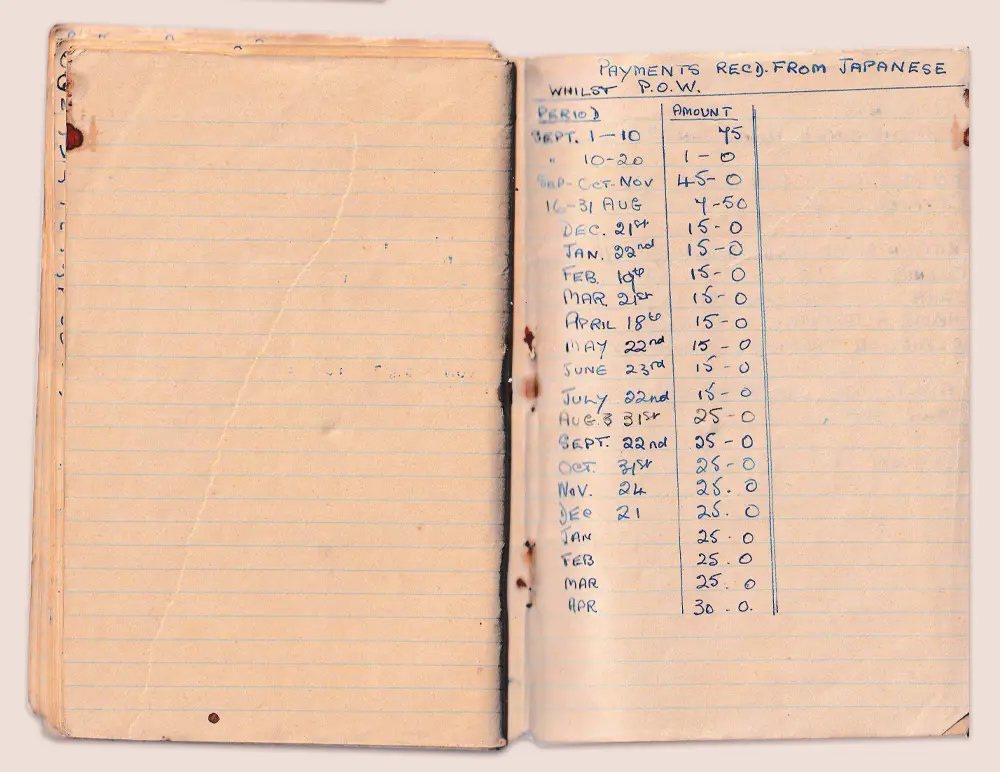 PAYMENTS RECD. FROM JAPANESE
WHILST P.O.W.
PERIOD AMOUNT
SEPT. 1-10 75
" 10-20 1-0
SEP-OCT-NOV 45-0
16-31 AUG 7-50
DEC. 21st 15-0
JAN. 22nd 15-0
FEB. 19th 15-0
MAR. 21st 15-0
APRIL 18th 15-0
MAY 22nd 15-0
JUNE 23rd 15-0
JULY 22nd 15-0
AUG. 31st 25-0
SEPT. 22nd 25-0
OCT. 31st 25-0
NOV. 24 25.0
DEC 21 25.0
JAN 25.0
FEB 25.0
MAR 25.0
APR 30-0.